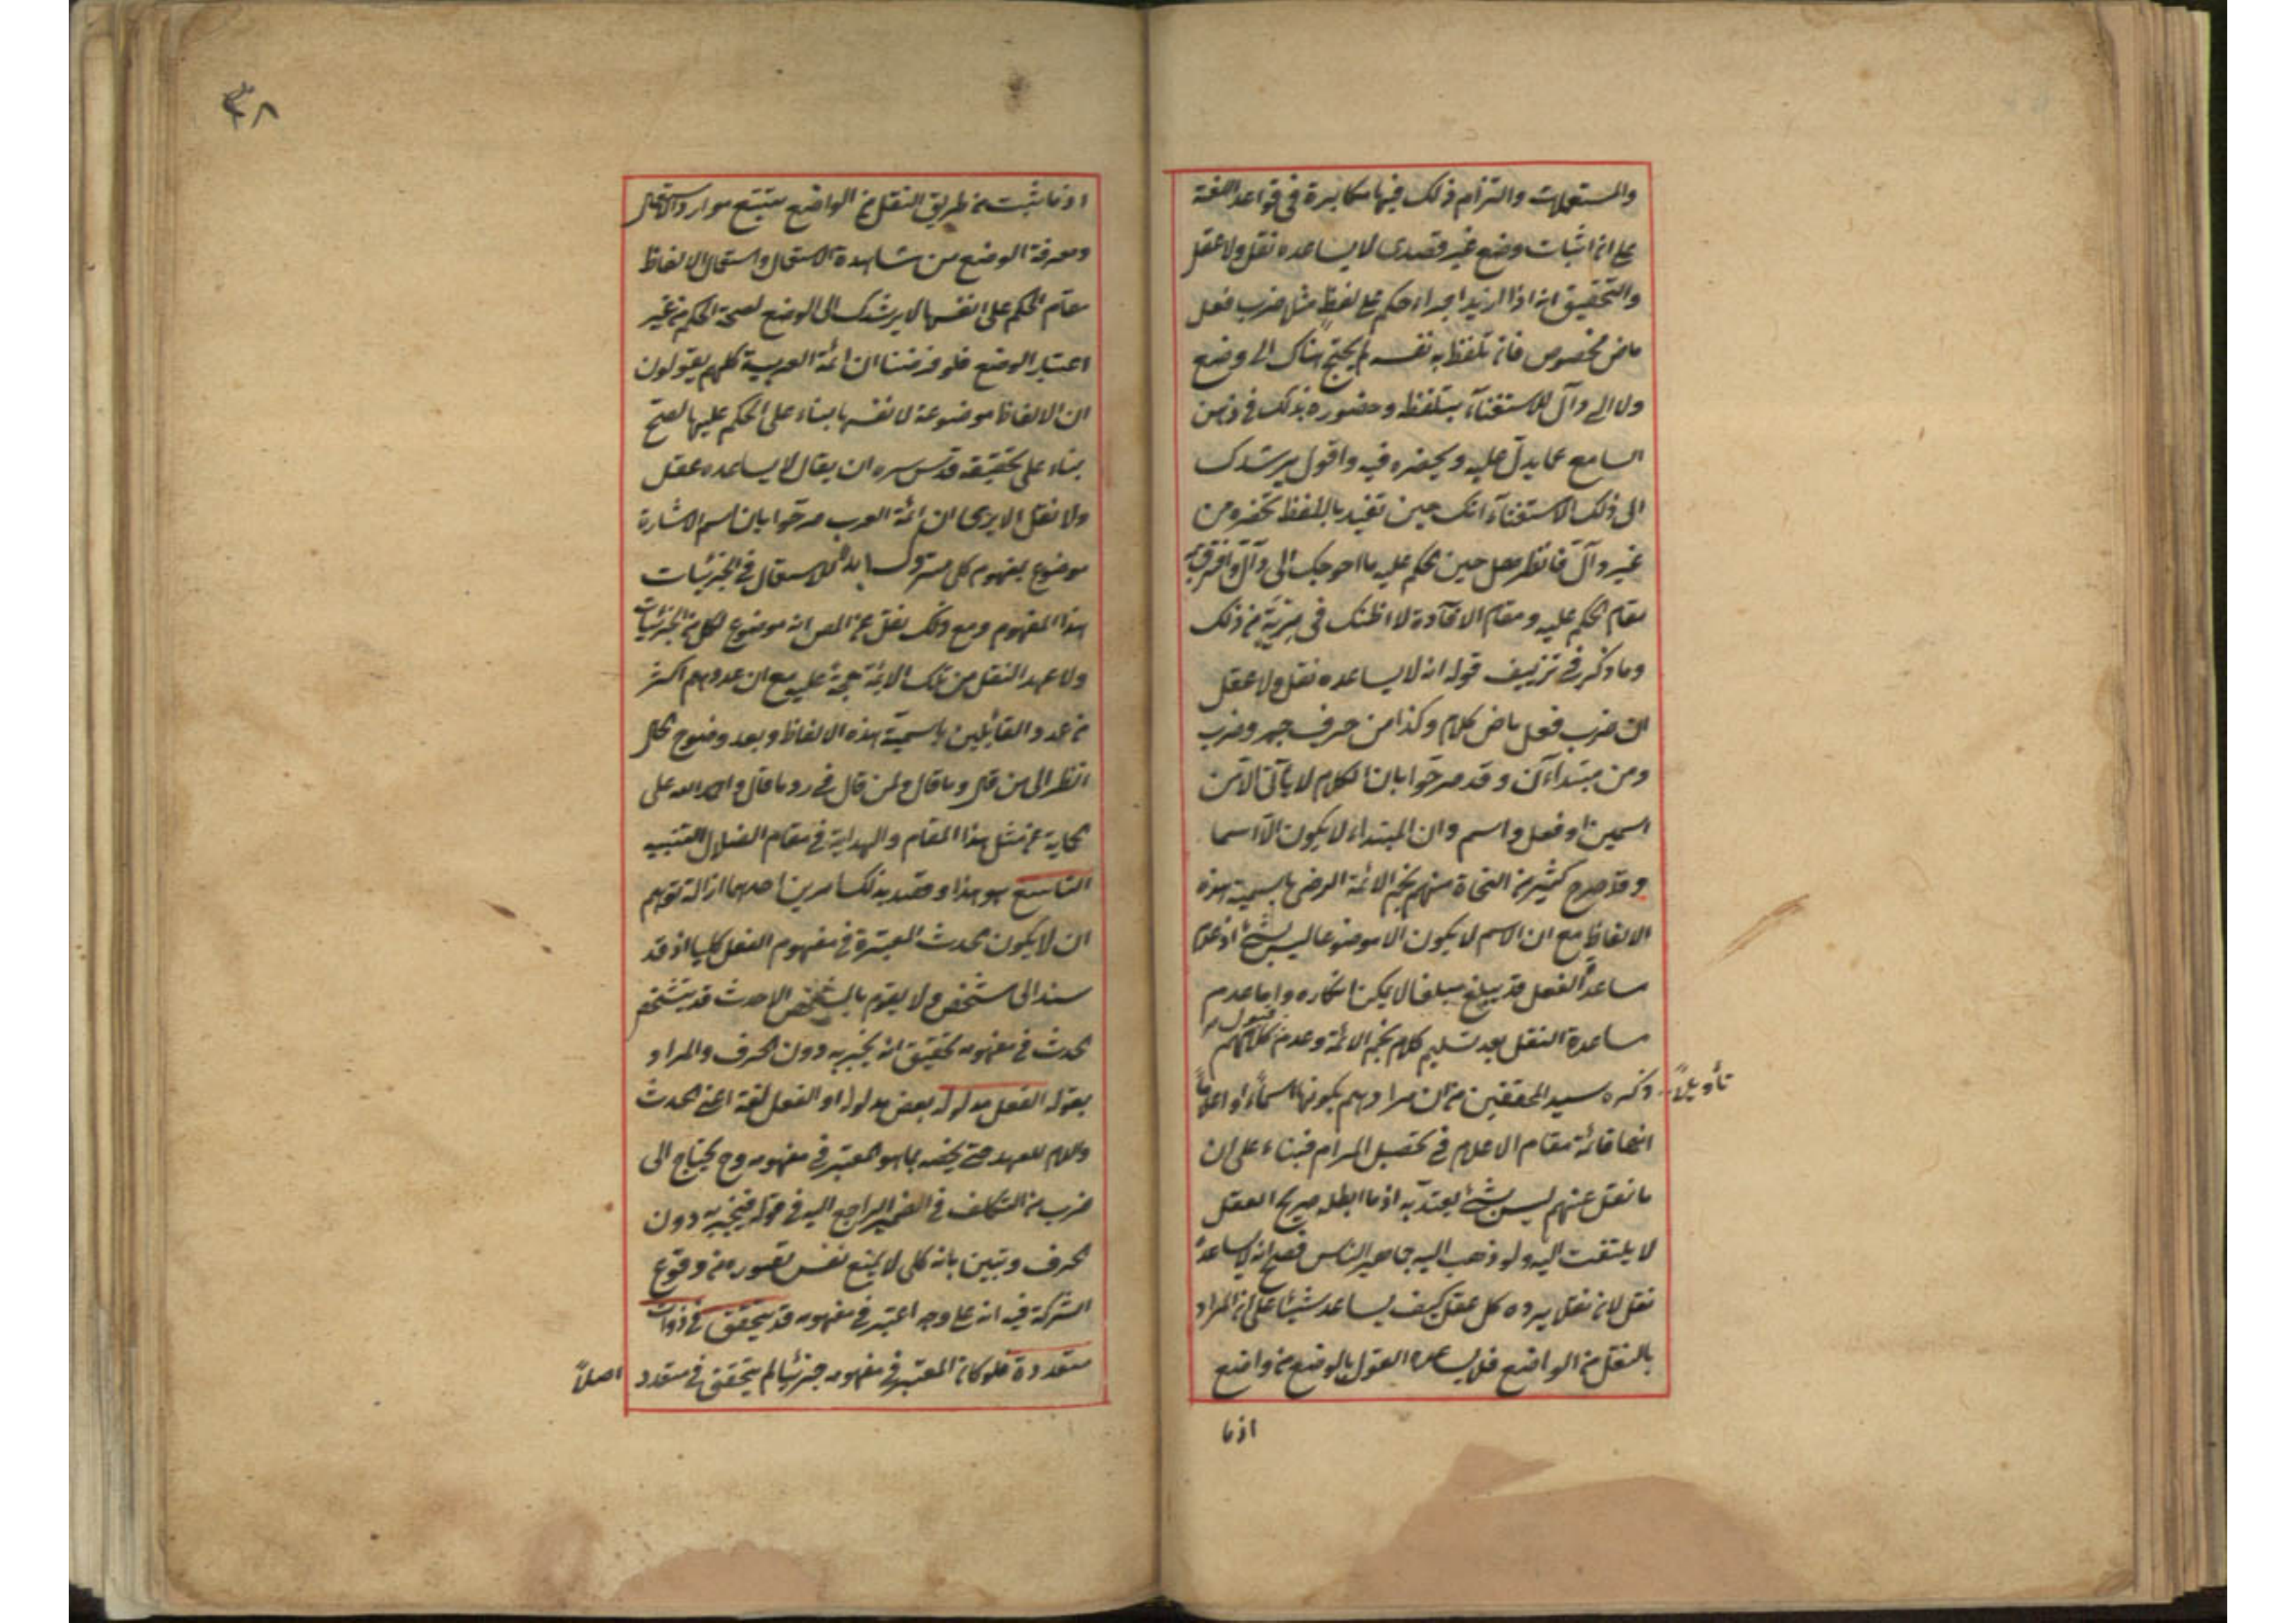 والمستعملات والتزام ذلك فيها مكابرة في قواعد اللغة
على ان اثبات وضع غير قصدى لا يساعده نقل ولا عقل
والتحقيق انه اذا اريد اجراء حكم على لفظ مثل ضرب فعل
ماض مخصوص فان تلفظ به نفسه لم يحتج هناك الى وضع
ولا الى دال للاستغناء بتلفظه وحضوره بذلك في ذهن
السامع عما يدل عليه ويحضره فيه واقول يرشدك
الى ذلك الاستغناء انك حين تفيد باللفظ تحضره من
غير دال فانظر هل حين تحكم عليه ما احوجك الى دال وافترق فيه
مقام الحكم عليه ومقام الافادة لا اظنك في مرية من ذلك
وما ذكر في تزييف قوله انه لا يساعده نقل ولا عقل
ان ضرب فعل ماض كلام وكذا من حرف جر وضرب
ومن مبتداءان وقد صرحوا بان الكلام لا يتأتى الا من
اسمين او فعل واسم وان المبتداء لا يكون الا اسما
وقد صرح كثير من النحاة منهم نجم الائمة الرضى باسمية هذه
الالفاظ مع ان الاسم لا يكون الا موضوعا ليس بشئ اذ عدم
مساعدة العقل قد يبلغ مبلغا لا يمكن انكاره واما عدم
مساعدة النقل بعد تسليم كلام نجم الائمة وعدم قبول كلامهم
تأويلا ذكره سيد المحققين من ان مرادهم بكونها اسماء او اعلاما
انها قائمة مقام الاعلام في تحصيل المرام فبناء على ان
ما نقل عنهم ليس بشئ يعتد به اذ ما ابطله صريح العقل
لا يلتفت اليه ولو ذهب اليه جماهير الناس فصح انه لا يساعده
نقل لانه نقل يرده كل عقل كيف يساعد شيئا على ان المراد
بالنقل من الواضع فلا يساعده القول بالوضع من واضع
اذ ما
٣٨
اذ ما ثبت من طريق النقل من الواضع تتبع موارد الاستعمال
ومعرفة الوضع من مشاهدة الاستعمال واستعمال الالفاظ
مقام الحكم على انفسها لا يرشدك الى الوضع لصحة الحكم من غير
اعتبار الوضع فلو فرضنا ان ائمة العربية كلهم يقولون
ان الالفاظ موضوعة لانفسها بناء على الحكم عليها لصح
بناء على تحقيقه قدس سره ان يقال لا يساعده عقل
ولا نقل الا يرى ان ائمة العرب صرحوا بان اسم الاشارة
موضوع لمفهوم كلى متروك ابدا للاستعمال في الجزئيات
هذا المفهوم ومع ذلك نقل عن المص انه موضوع لكل من الجزئيات
ولا عهد النقل من تلك الائمة حجة عليه مع ان عددهم اكثر
من عدد القائلين باسمية هذه الالفاظ وبعد وضوح الحال
انظر الى من قال وما قال ولمن قال في رد ما قال والحمد لله على
الحماية عن مثل هذا المقام والهداية في مقام الضلال التنبيه
التاسع هو هذا وقصد بذلك امرين احدهما ازالة توهم
ان لا يكون الحدث المعتبرة في مفهوم الفعل كليا اذ قد
يسند الى متشخص ولا يقوم بالمتشخص الا حدث قد يتشخص
الحدث في مفهومه تحقيق انه يخبر به دون الحرف والمراد
بقوله الفعل مدلوله بعض مدلوله او الفعل لغة اعنى الحدث
واللام للعهد حتى يخصه بما هو المعتبر في مفهومه وح يحتاج الى
ضرب من التكلف في الضمير الراجع اليه في قوله فيخبر به دون
الحرف وتبين بانه كلى لا يمنع نفس تصوره من وقوع
الشركة فيه انه على وجه اعتبر في مفهومه قد يتحقق في ذوات
متعددة فلو كان المعتبر في مفهومه جزئيا لم يتحقق في متعدد اصلا